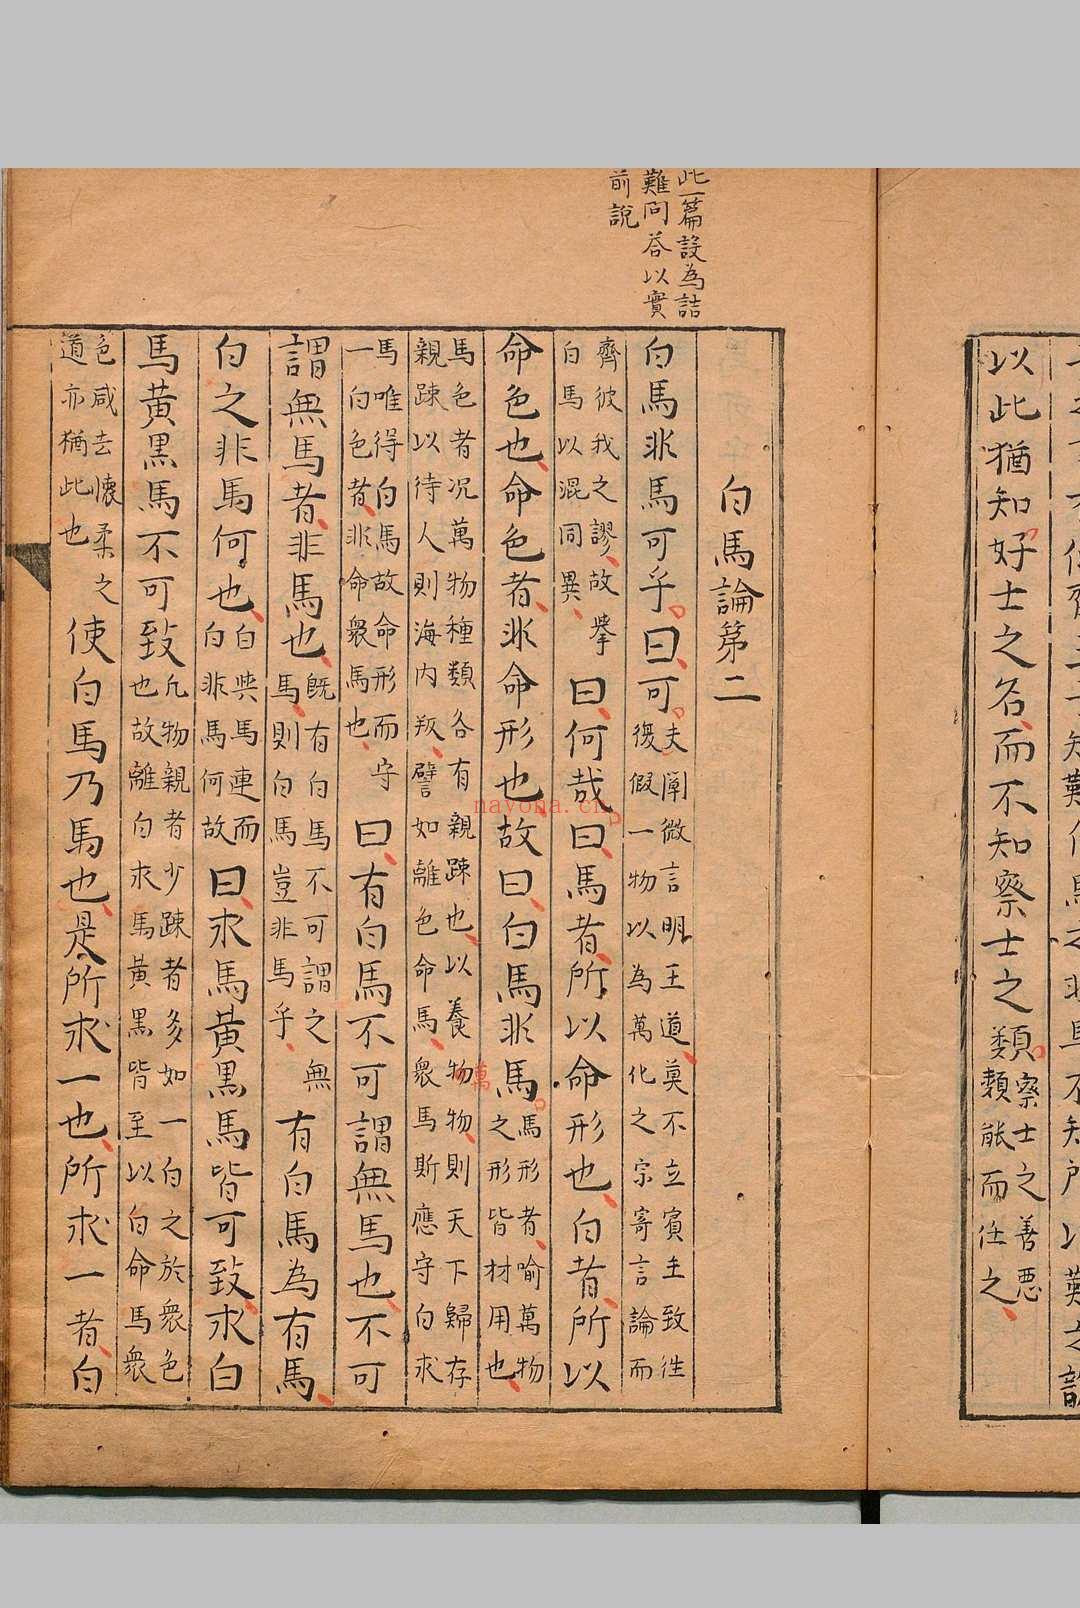 以此猶知好士之名而不知察士之類察士之善惡
類能而任之
此一篇設為詰
難問荅以實
前說
白馬論第二
白馬非馬可乎曰可夫闡微言明王道莫不立賓主致往
復假一物以為萬化之宗寄言論而
齊彼我之謬故舉
白馬以混同異曰何哉曰馬者所以命形也白者所以
命色也命色者非命形也故曰白馬非馬馬形者喻萬物
之形皆材用也
馬色者况萬物種類各有親踈也以養萬物物則天下歸存
親踈以待人則海内叛譬如離色命馬衆馬斯應守白求
馬唯得白馬故命形而守
一白色者非命衆馬也曰有白馬不可謂無馬也不可
謂無馬者非馬也既有白馬不可謂之無
馬則白馬豈非馬乎有白馬為有馬
白之非馬何也白與馬連而
白非馬何故曰求馬黃黒馬皆可致求白
馬黃黒馬不可致凡物親者少踈者多如一白之於衆色
也故離白求馬黃黒皆至以白命馬衆
色咸去懷柔之
道亦猶此也使白馬乃馬也是所求一也所求一者白
nayona.cn